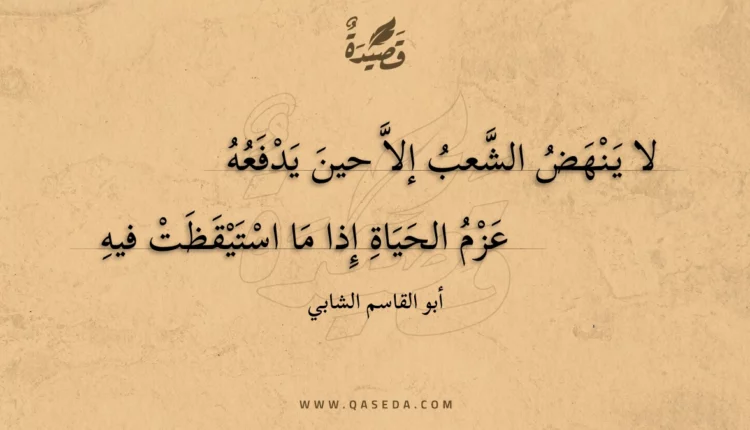 قَصِيْدَةٌ
لا يَنْهَضُ الشَّعبُ إلاَّ حينَ يَدْفَعُهُ
عَزْمُ الحَيَاةِ إِذا مَا اسْتَيْقَظَتْ فيهِ
أبو القاسم الشابي
WWW.QASEDA.COM